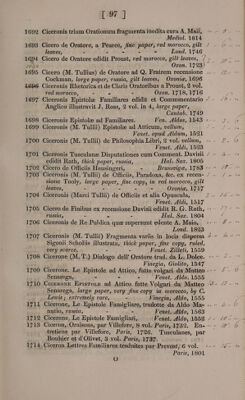 [ 97 ]
1692 Ciceronis trium Orationum fragmenta inedita cura A. Maii,
Mediol. 1814
1693 Cicero de Oratore, a Pearce, fine paper, red morocco, gilt
leaves, Lond. 1746
1694 Cicero de Oratore edidit Proust, red morocco, gilt leaves,
Oxon. 1723
1695 Cicero (M. Tullius) de Oratore ad Q. Fratrem recensione
Cockman, large paper, russia, gilt leaves, Oxoniæ, 1696
1696 Ciceronis Rhetorica et de Claris Oratoribus a Proust, 2 vol.
red morocco, Oxon. 1718, 1716
1697 Ciceronis Epistolæ Familiares edidit et Commentario
Anglico illustravit J. Ross, 2 vol. in 4, large paper,
Cantab. 1749
1698 Ciceronis Epistolæ ad Familiares. Ven. Aldus, 1543
1699 Ciceronis (M. Tullii) Epistolæ ad Atticum, vellum,
Venet. apud Aldum, 1521
1700 Ciceronis (M. Tullii) de Philosophia Libri, 2 vol. vellum,
Venet. Aldi, 1523
1701 Ciceronis Tusculanæ Disputationes cum Comment. Davisii
edidit Rath, thick paper, russia, Hal. Sax. 1805
1702 Cicero de Officiis Heusingeri, Brunsvigæ, 1783
1703 Ciceronis (M. Tullii) de Officiis, Paradoxa, &c. ex recen-
sione Tooly, large paper, fine copy, in red morocco, gilt
leaves, Oxoniæ, 1717
1704 Ciceronis (Marci Tullii) de Officiis et alia Opuscula,
Venet. Aldi, 1517
1705 Cicero de Finibus ex recensione Davisii edidit R. G. Rath,
russia, Hal. Sax. 1804
1706 Ciceronis de Re Publica quæ supersunt edente A. Maio,
Lond. 1823
1707 Ciceronis (M. Tullii) Fragmenta variis in locis dispersa
Sigonii Scholiis illustrata, thick paper, fine copy, ruled,
very scarce, Venet. Zilleti, 1559
1708 Cicerone (M. T.) Dialogo dell' Oratore trad. da L. Dolce.
Vinegia, Giolito, 1547
1709 Cicerone, Le Epistole ad Attico, fatte volgari da Matteo
Senarega, Venet. Aldo, 1555
1710 Cicerone Epistole ad Attico fatte Volgari da Matteo
Senarega, large paper, very fine copy in morocco, by C.
Lewis; extremely rare, Vinegia, Aldo, 1555
1711 Cicerone, Le Epistole Famigliare, tradotte da Aldo Ma-
nutio, russia, Venet. Aldo, 1563
1712 Cicerone, Le Epistole Famigliari, Venet. Aldo, 1552
1713 Ciceron, Oraisons, par Villefore, 8 vol. Paris, 1732. En-
tretiens par Villefore, Paris, 1726. Tusculanes, par
Bouhier et d'Olivet, 3 vol. Paris, 1737.
1714 Ciceron Lettres Familieres traduites par Prevost, 6 vol.
Paris, 1801
O